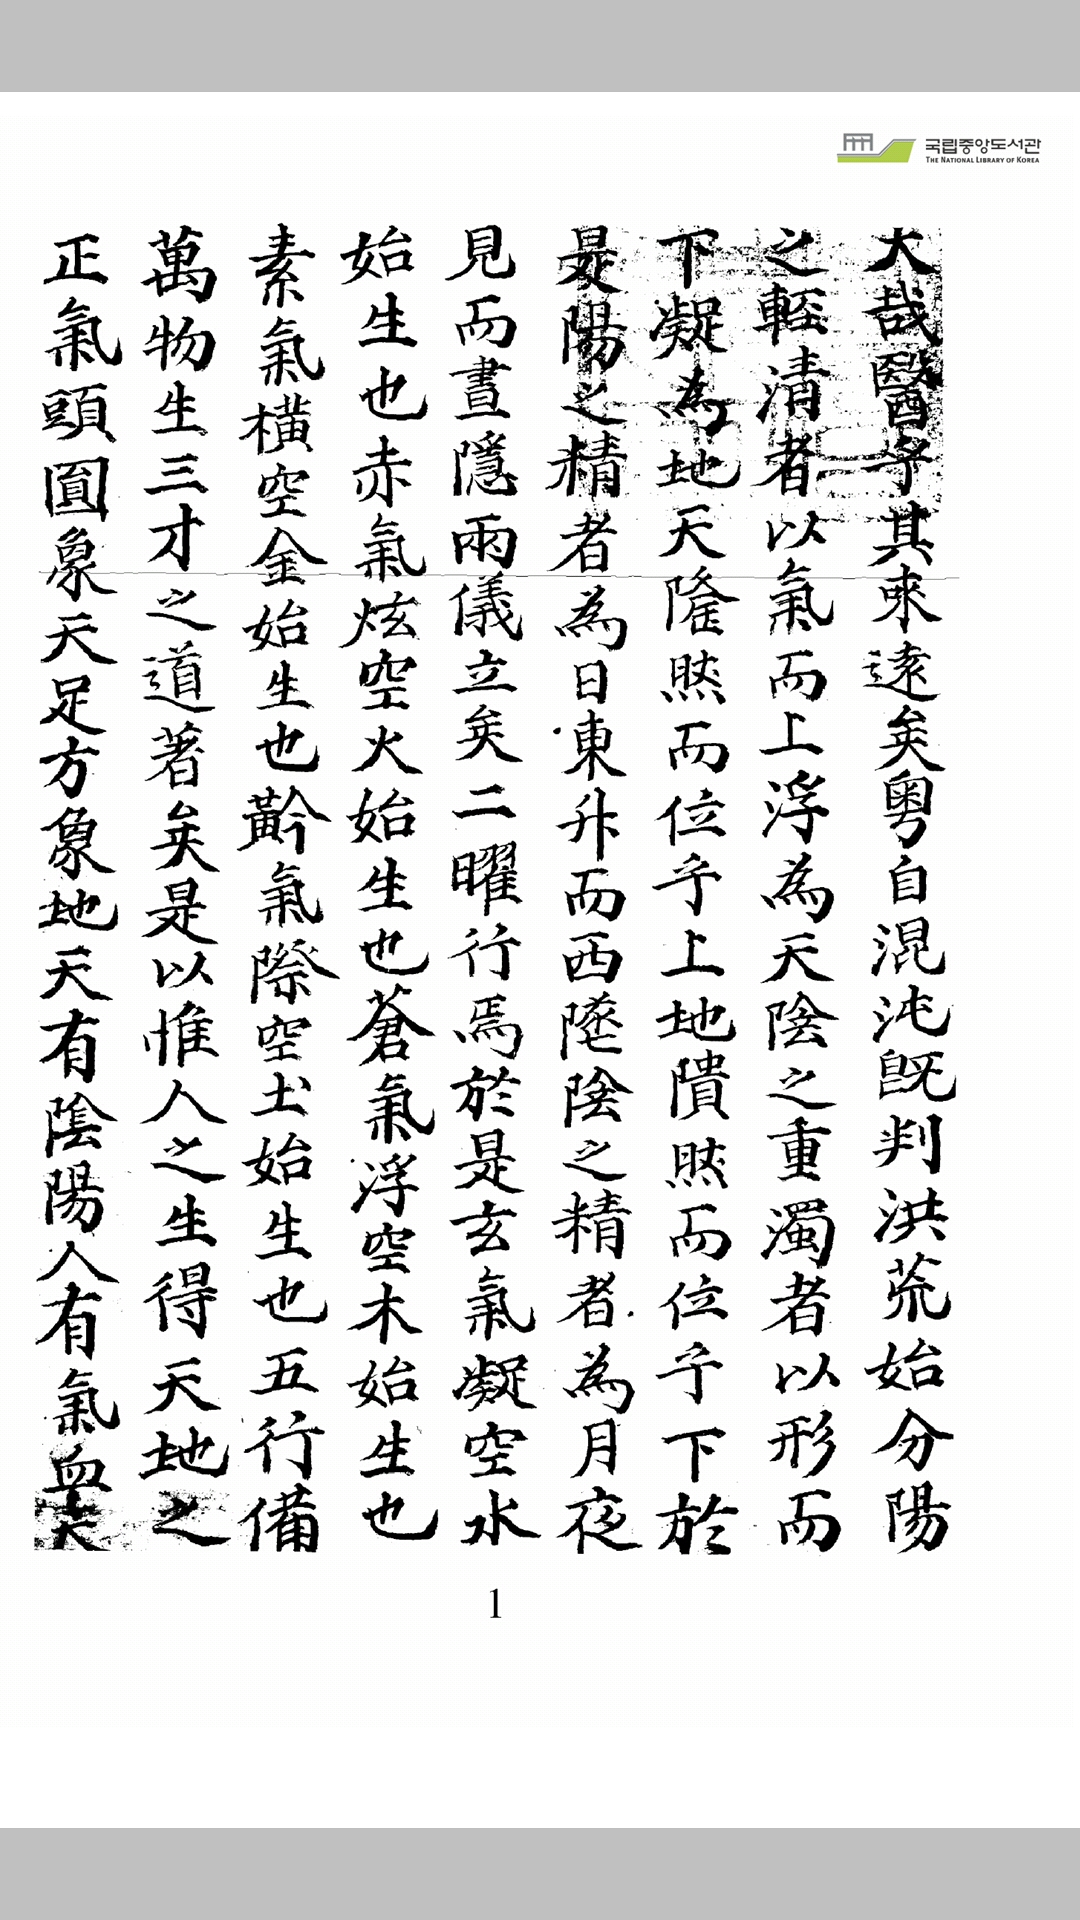 국립중앙도서관
THE NATIONAL LIBRARY OF KOREA
大哉醫乎其來遠矣粤自混沌旣判洪荒始分陽
之輕清者以氣而上浮為天陰之重濁者以形而
下凝為地天隆然而位乎上地隤然而位乎下於
是陽之精者為日東升而西墜陰之精者為月夜
見而晝隱兩儀立矣二曜行焉於是玄氣凝空水
始生也赤氣炫空火始生也蒼氣浮空木始生也
素氣橫空金始生也黅氣際空土始生也五行備
萬物生三才之道著矣是以惟人之生得天地之
正氣頭圓象天足方象地天有陰陽人有氣血天
1